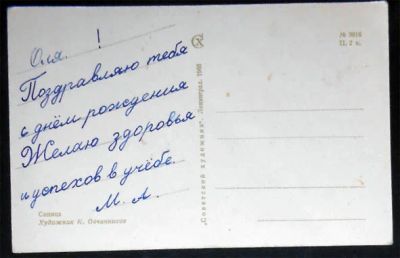 Оля. !
Поздравляю тебя
с днём рождения
Желаю здоровья
и успехов в учёбе.
М. А.
Синица
Художник К. Овчинников
"Советский художник". Ленинград. 1968
№ 9816
Ц. 2 к.